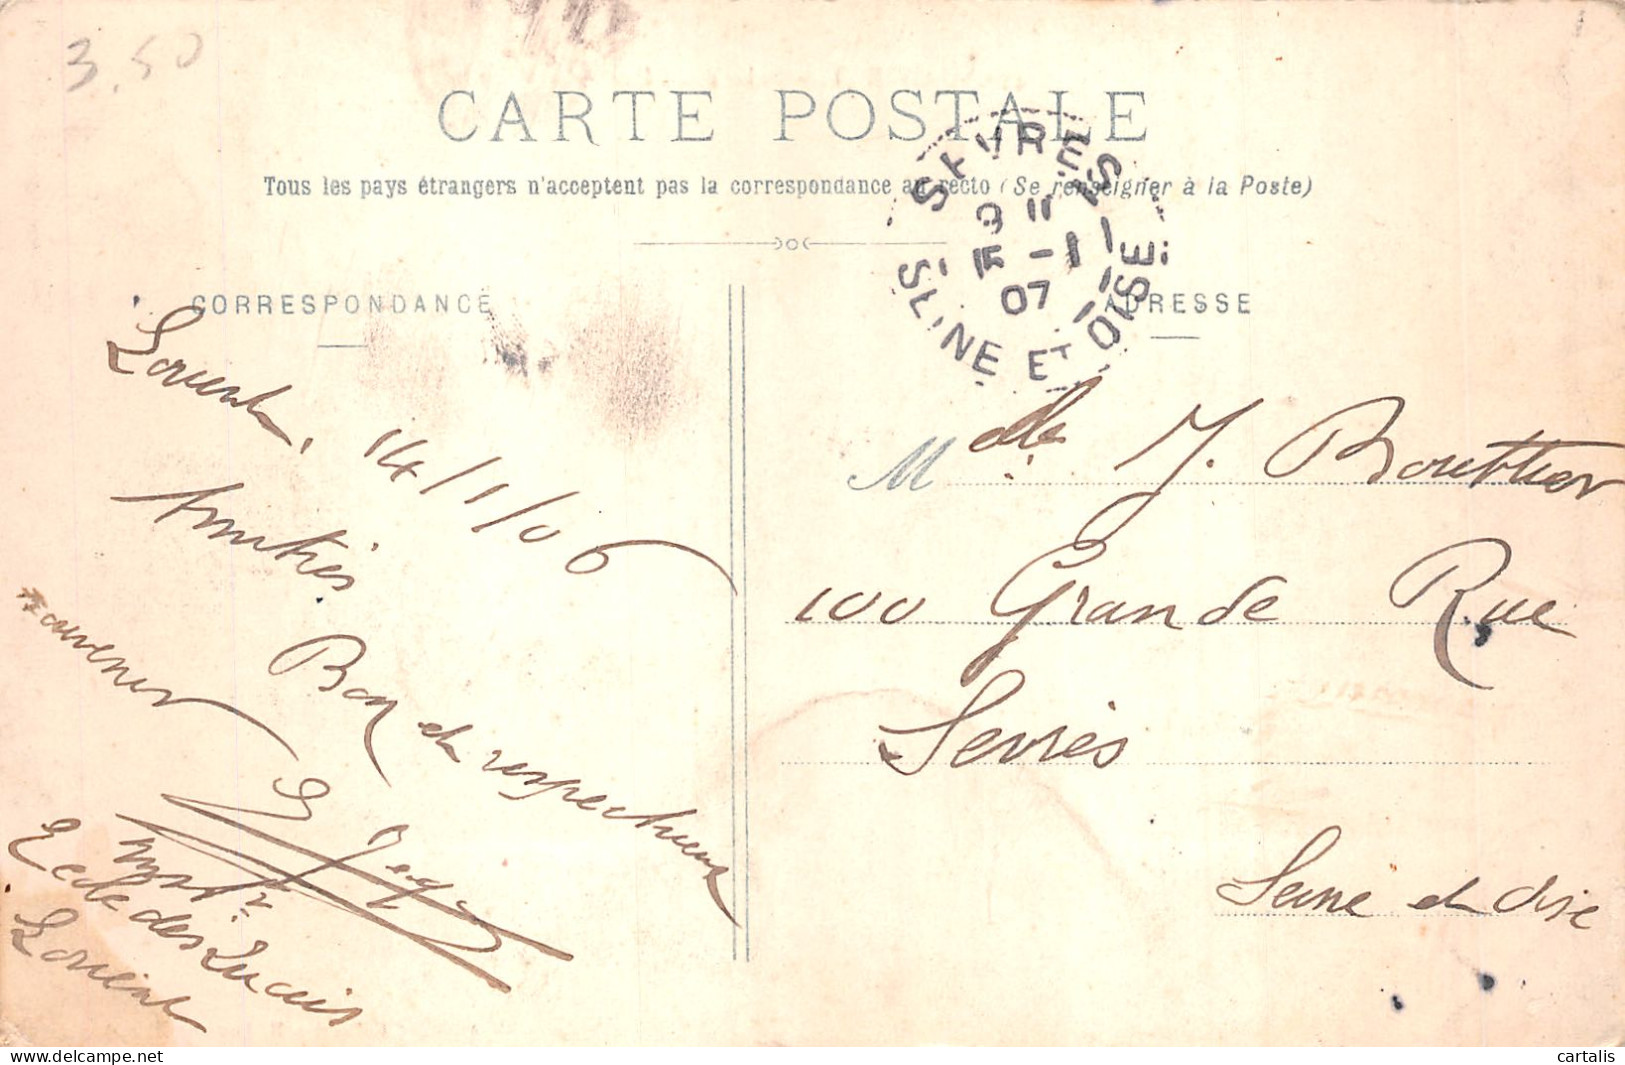 3.50
CARTE POSTALE
Tous les pays étrangers n'acceptent pas la correspondance au recto (Se renseigner à la Poste)
SEVRES
9 II
15 - 1
07
SEINE ET OISE
CORRESPONDANCE
ADRESSE
Lorient, 14/1/06
Amitiés
Bon et respectueux
souvenir
Ecole des
Lorient
M
lle J. Bouttier
100 Grande Rue
Sevrès
Seine et Oise
cartalis